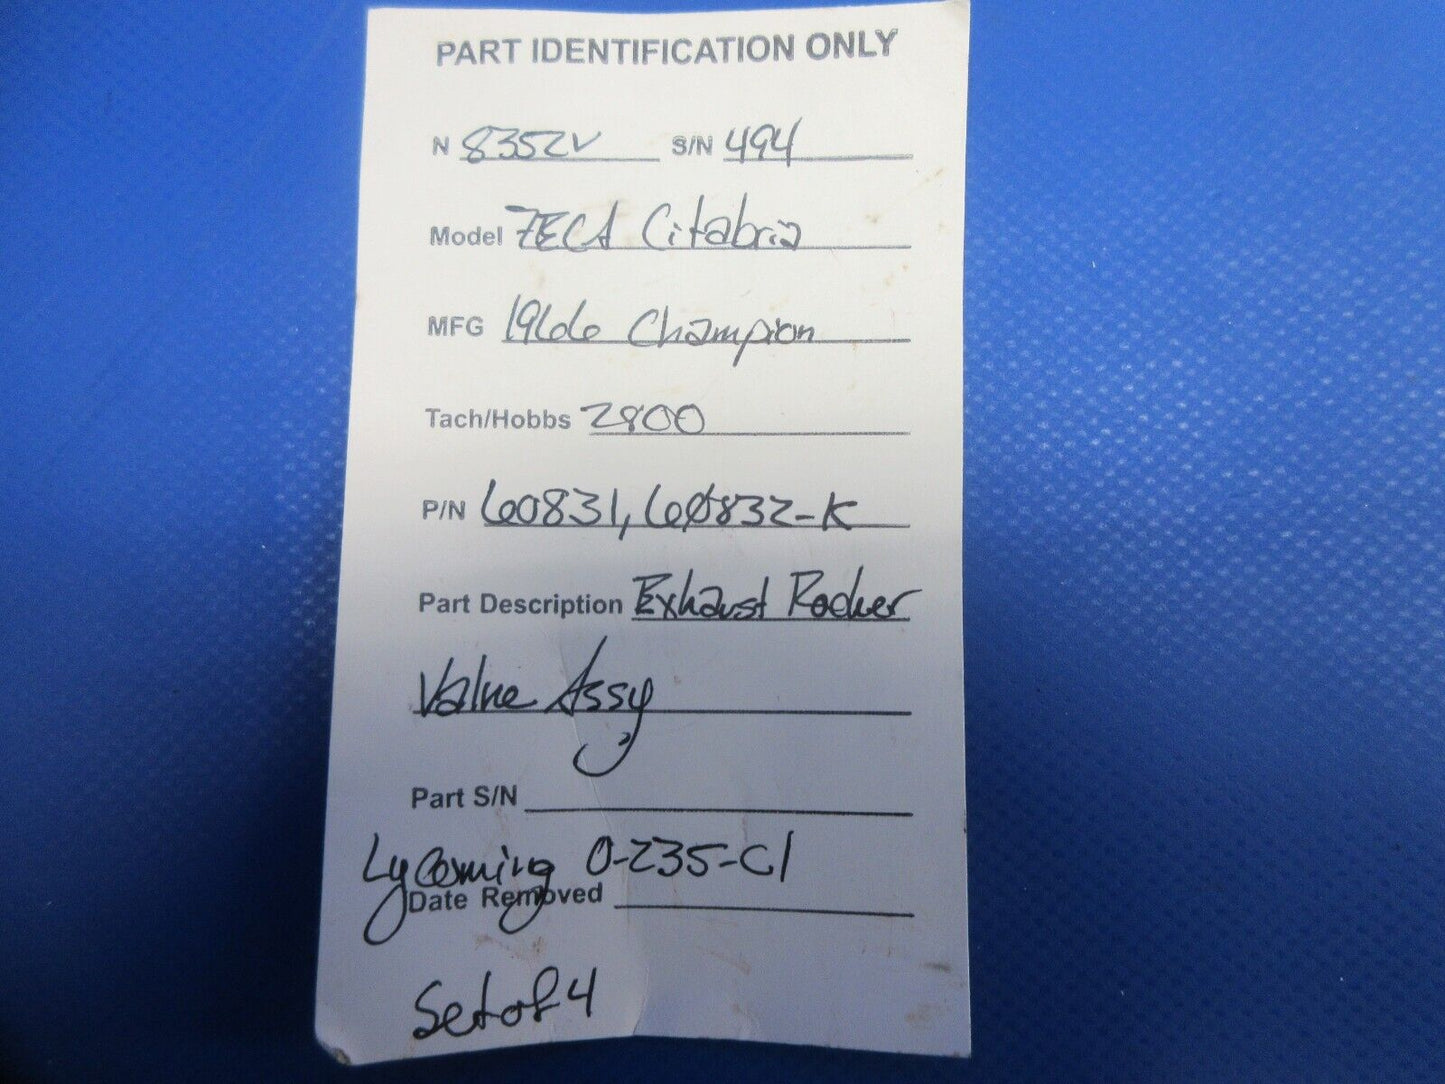 PART IDENTIFICATION ONLY
N 8352V S/N 494
Model 7ECA Citabria
MFG 1966 Champion
Tach/Hobbs 2800
P/N 60831, 60832-K
Part Description Exhaust Rocker
Valve Assy
Part S/N
Lycoming O-235-C1
Date Removed
Set of 4